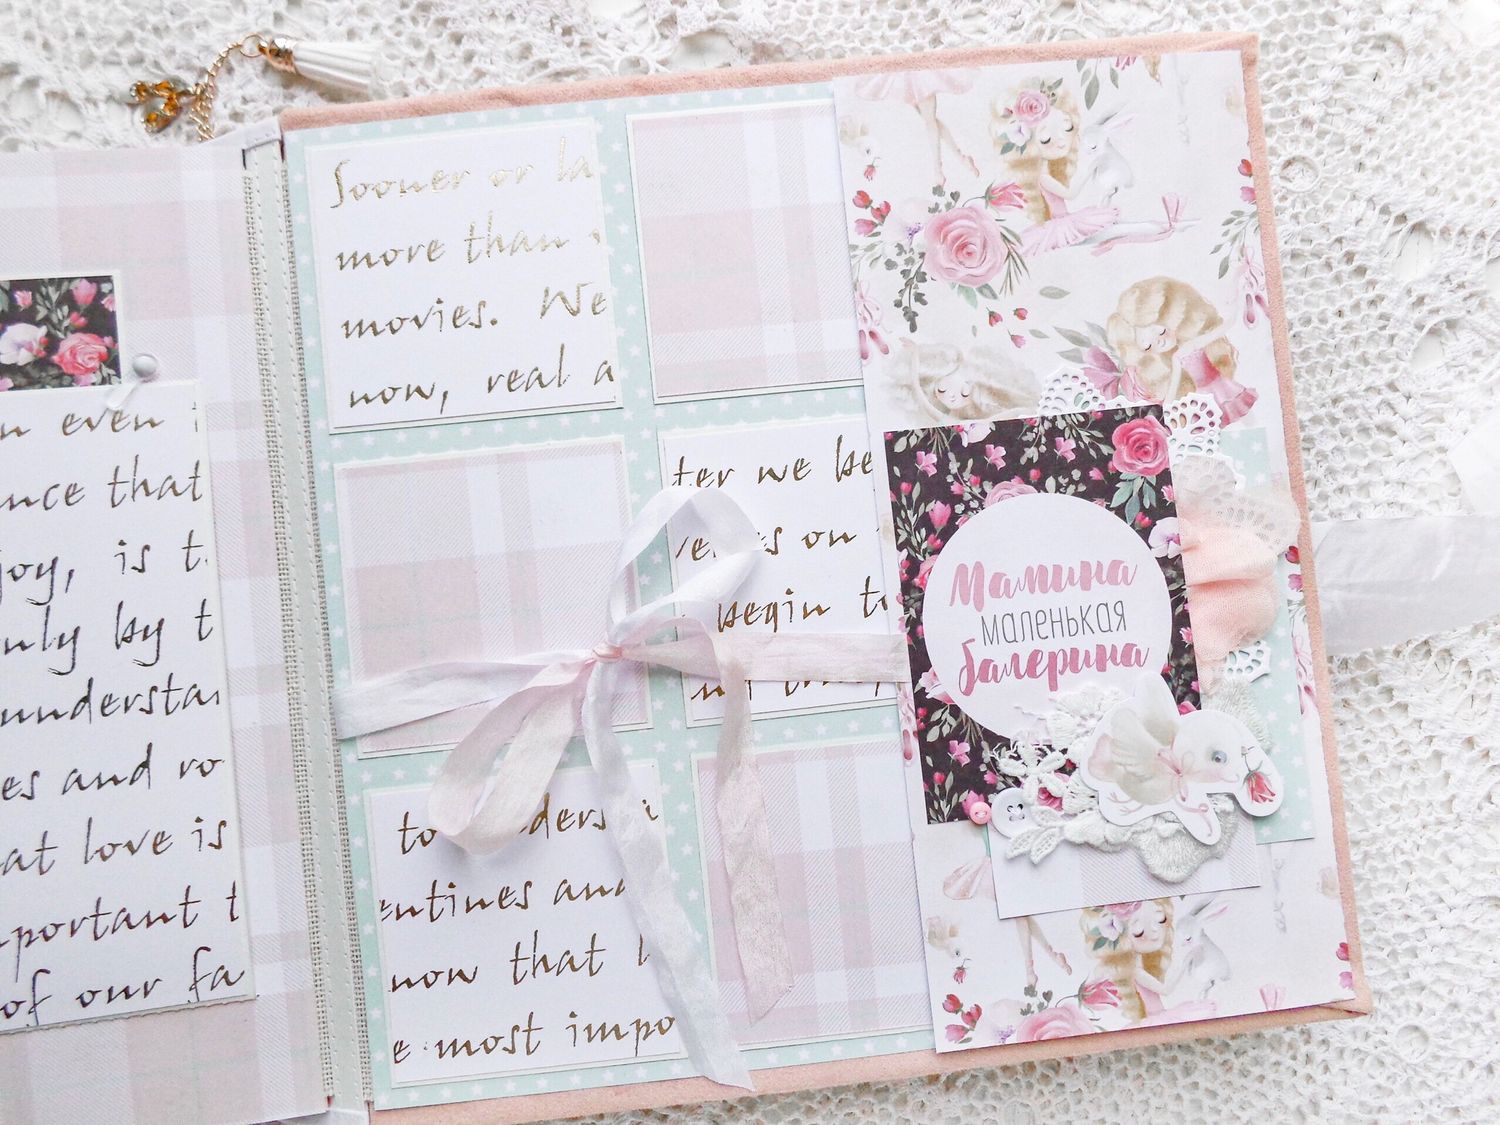 n even
nce that
joy, is t
nly by t
understa
es and ro
at love is
portant t
of our fa
Sooner or la
more than
movies. We
now, real a
ter we be
on
begin t
to
entines and
now that
e most impo
Мамина
маленькая
балерина